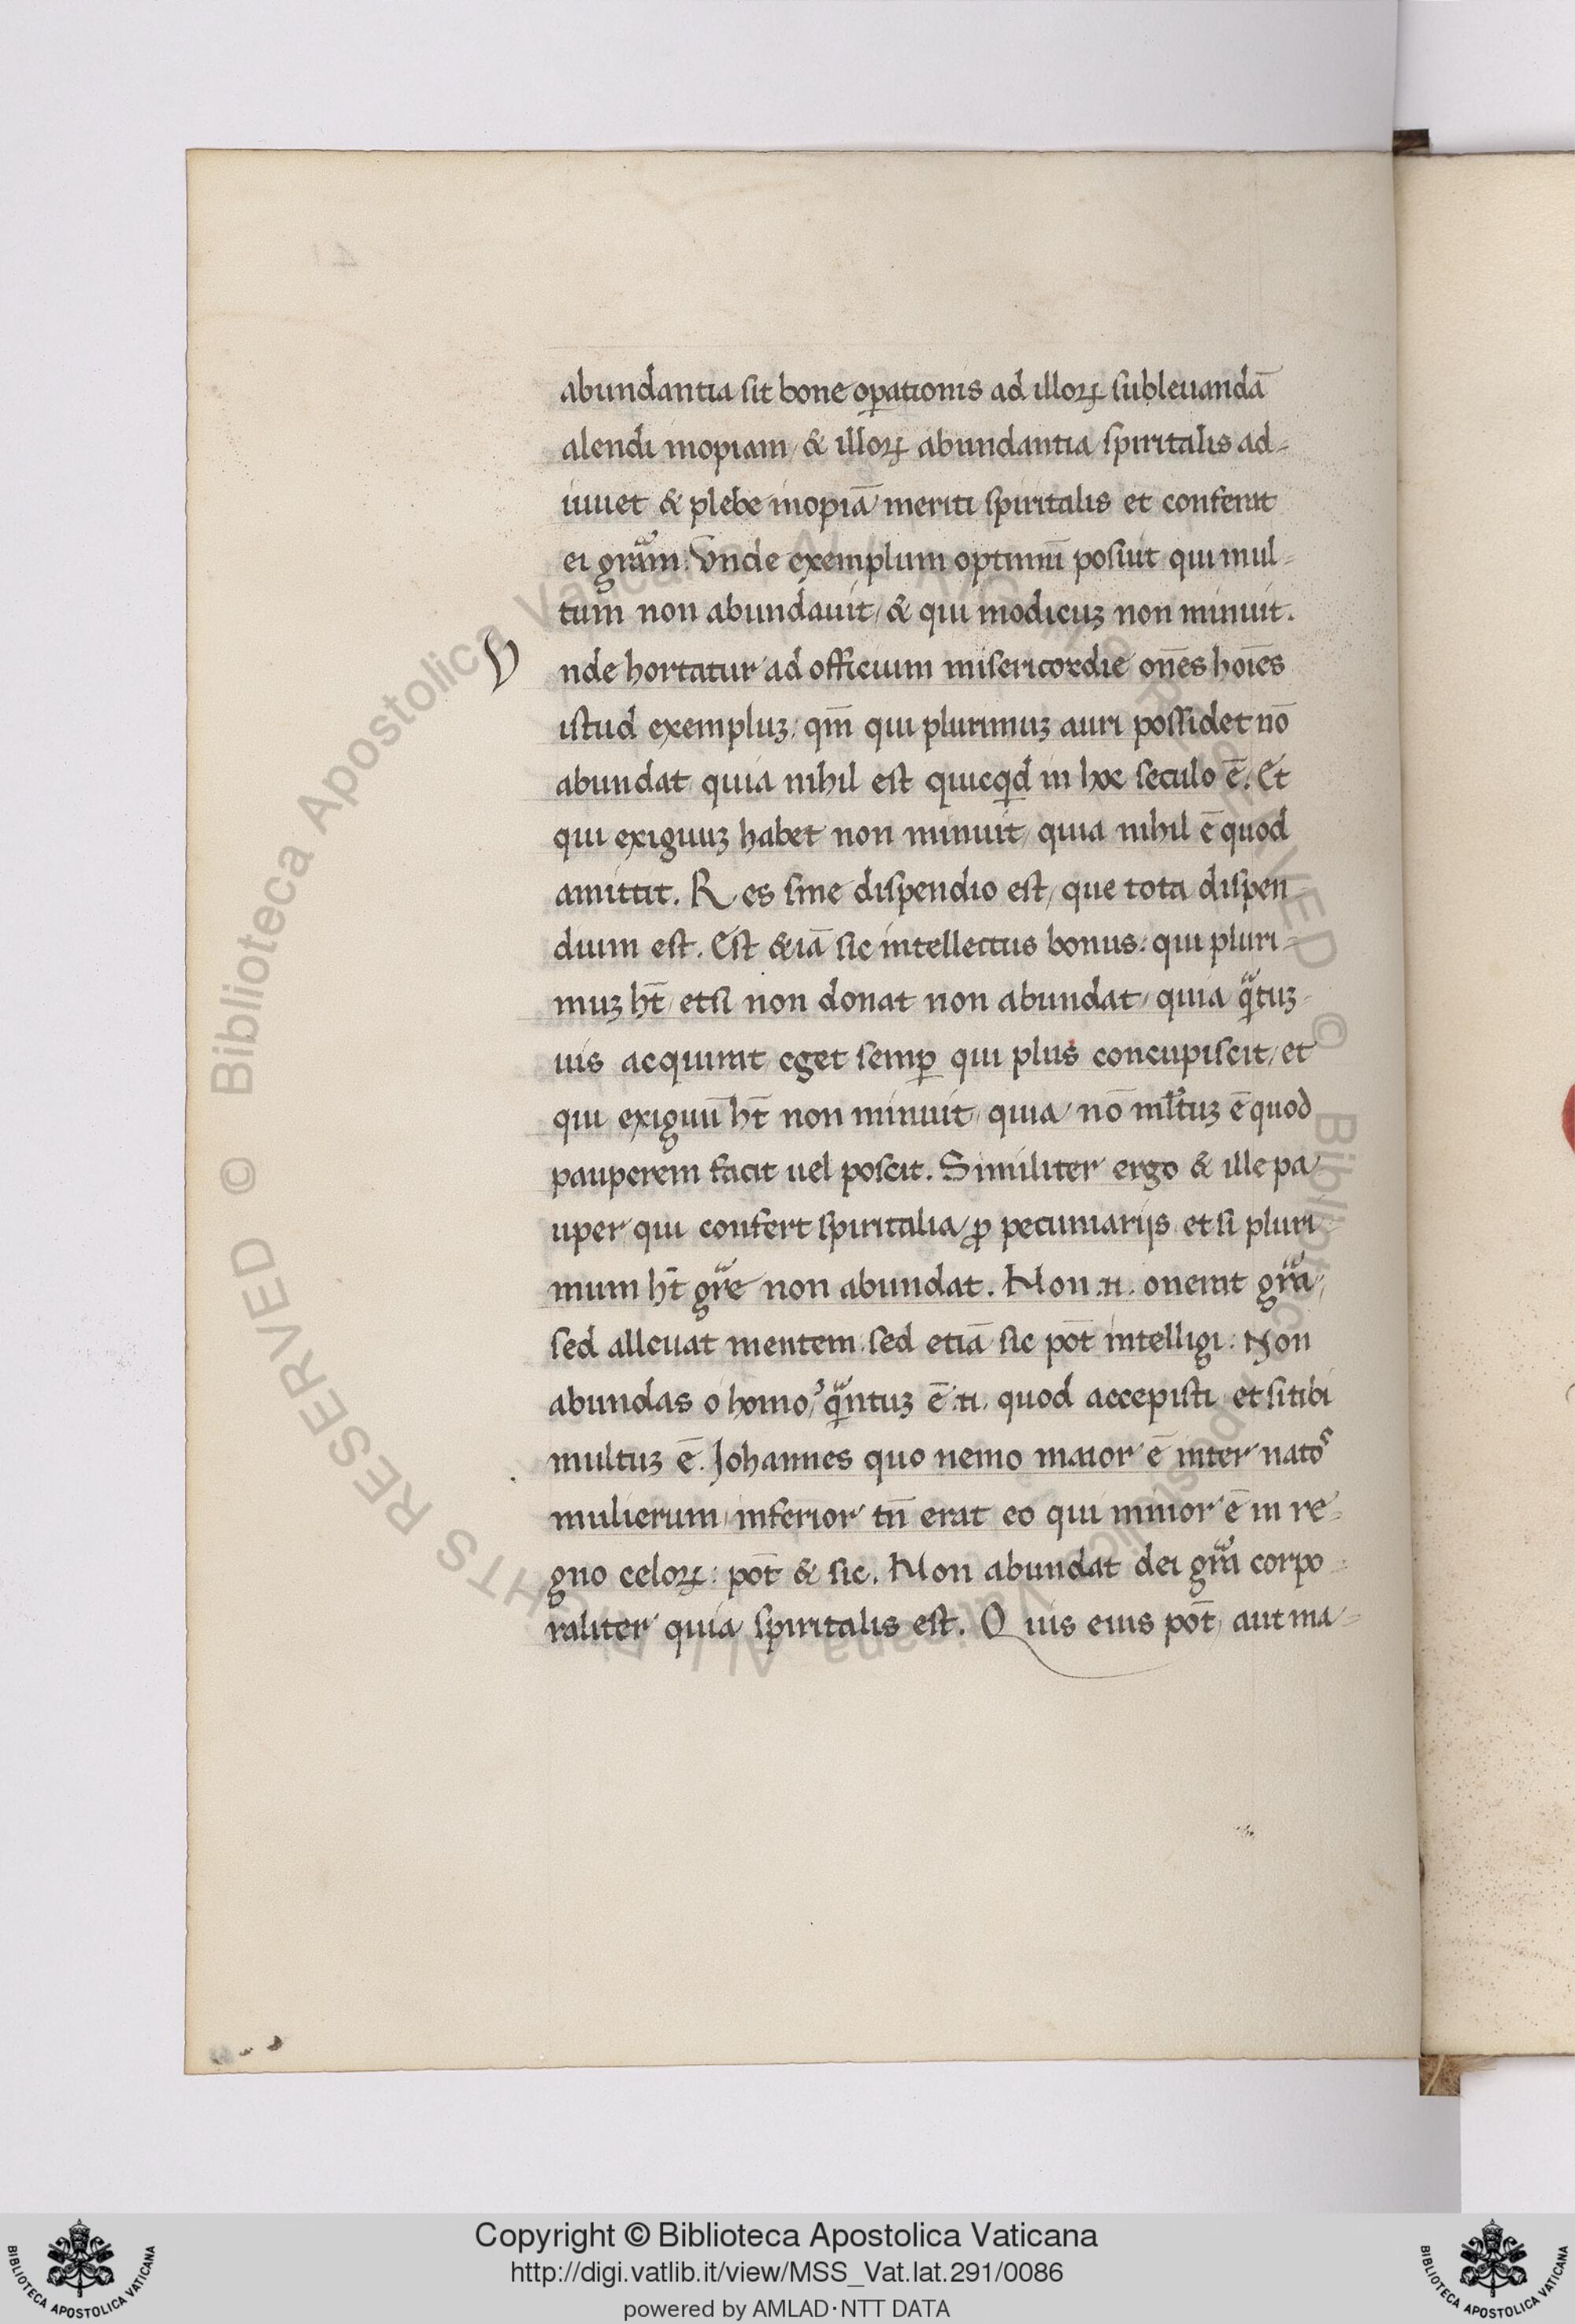 abundantia sit bone oꝑationis ad illoꝝ subleuandā
alendi inopiam / & illoꝝ abundantia spiritalis ad-
iuuet & plebe inopiā meriti spiritalis et conferat
ei gram. Vnde exemplum optimū posuit qui mul-
tum non abundauit / & qui modicuꝫ non minuit.
Vnde hortatur ad officium misericordie oñes hoīes
istud exempluꝫ. qm̄ qui plurimuꝫ auri possidet nō
abundat quia nihil est quicqd̄ in hoc seculo ē. Et
qui exiguuꝫ habet non minuit / quia nihil ē quod
amittit. Res sine dispendio est / que tota dispen-
dium est. Est &iā sic intellectus bonus: qui pluri-
muꝫ hт̄ / etsi non donat non abundat / quia qͣ̄tuꝫ-
uis acquirat eget semꝑ qui plus concupiscit / et
qui exiguū ht̄ non minuit / quia nō ml̄tuꝫ ē quod
pauperem facit uel poscit. Similiter ergo & ille pa-
uper qui confert spiritalia / ꝓ pecuniarijs et si pluri-
mum ht̄ grͣe non abundat. Non .n. onerat grͣa /
sed alleuat mentem. sed etiā sic pōt intelligi: Non
abundas o homo / qͣ̄ntuꝫ ē .n. quod accepisti et si tibi
multuꝫ ē. Johannes quo nemo maior ē inter natoˢ
mulierum / inferior tn̄ erat eo qui minor ē in re-
gno celoꝝ: pōt & sic. Non abundat dei grͣa corpo-
raliter quia spiritalis est. Quis eius pōt / aut ma-
© Biblioteca Apostolica Vaticana ALL RIGHTS RESERVED
Copyright © Biblioteca Apostolica Vaticana
http://digi.vatlib.it/view/MSS_Vat.lat.291/0086
powered by AMLAD·NTT DATA
BIBLIOTECA APOSTOLICA VATICANA
BIBLIOTECA APOSTOLICA VATICANA